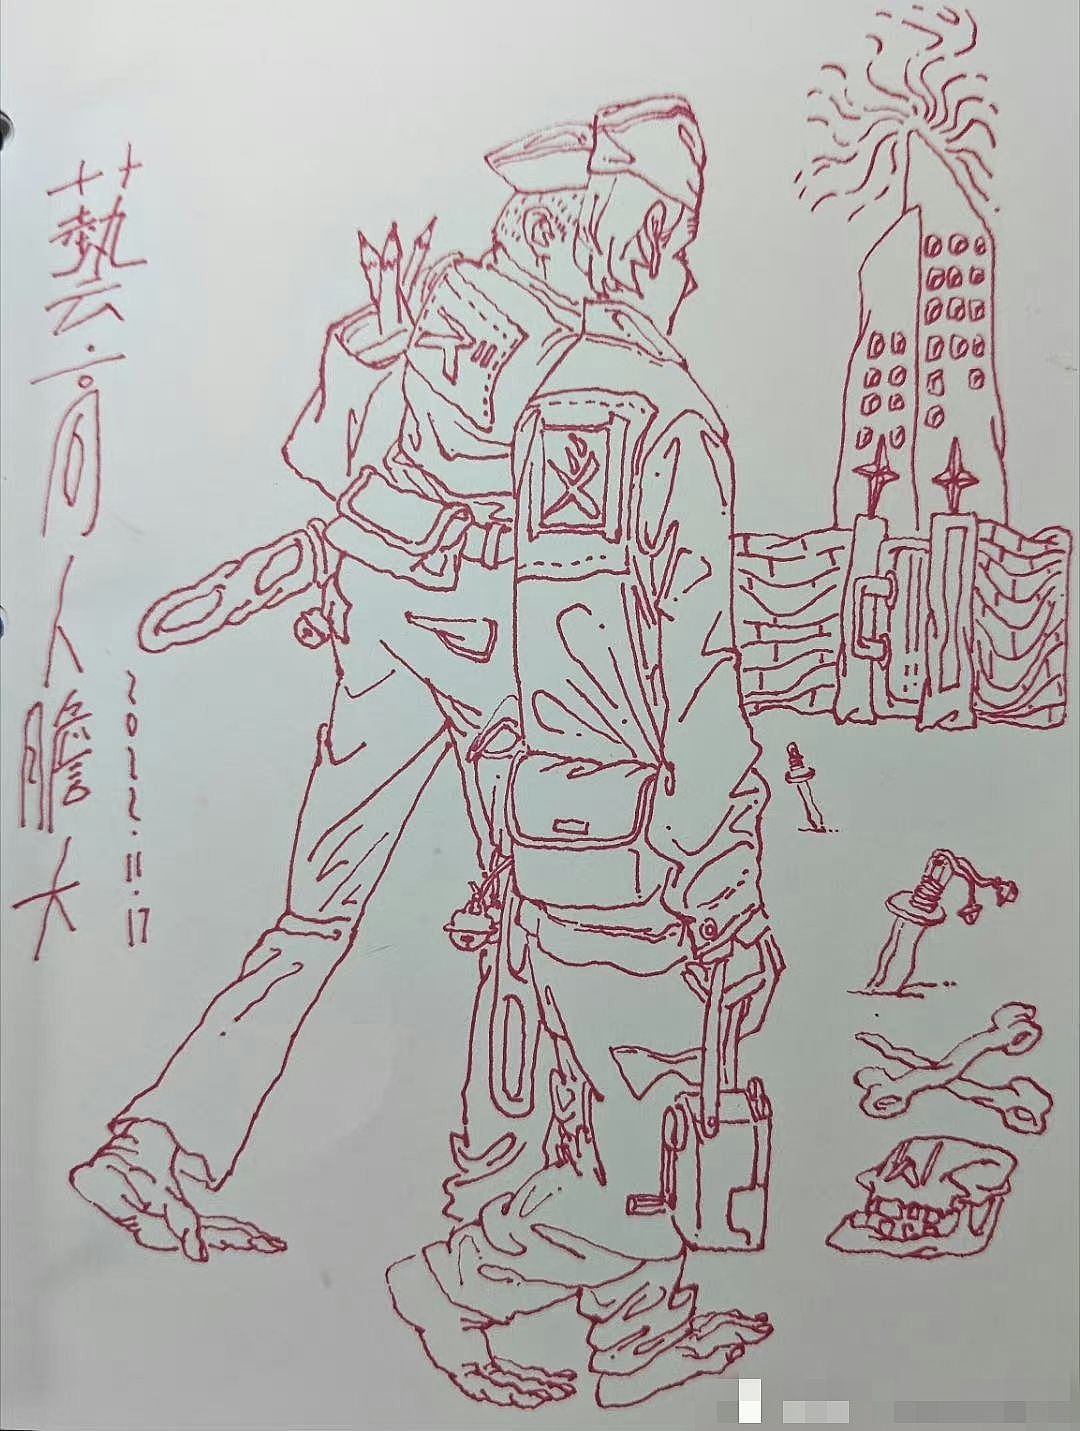 藝高人膽大
2022.11.17